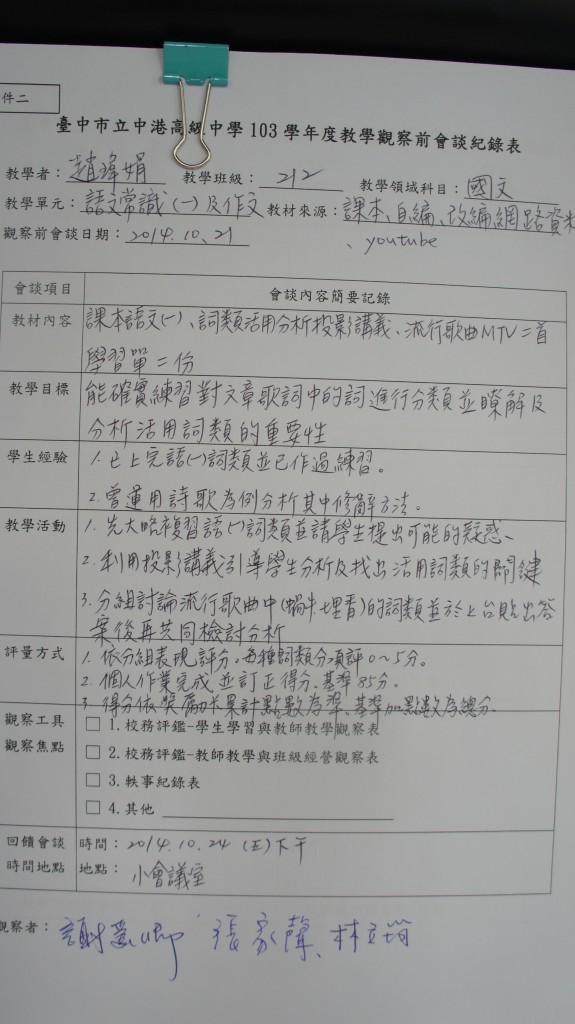 件二
臺中市立中港高級中學 103 學年度教學觀察前會談紀錄表
教學者：趙瑋娟 教學班級：212 教學領域科目：國文
教學單元：語文常識(一)及作文 教材來源：課本、自編、改編網路資料
、youtube
觀察前會談日期：2014.10.21
會談項目 會談內容簡要記錄
教材內容 課本語文(一)、詞類活用分析投影講義、流行歌曲MTV二首
學習單二份
教學目標 能確實練習對文章歌詞中的詞進行分類並瞭解及
分析活用詞類的重要性
學生經驗 1. 已上完語(一)詞類並已作過練習。
2. 曾運用詩歌為例分析其中修辭方法。
教學活動 1. 先大略複習語(一)詞類並請學生提出可能的疑惑、
2. 利用投影講義引導學生分析及找出活用詞類的關鍵
3. 分組討論流行歌曲中(蝸牛、七里香)的詞類並於上台貼出答
案後再共同檢討分析
評量方式 1. 依分組表現評分。每種詞類分項評0～5分。
2. 個人作業完成並訂正得分.基準85分。
3. 得分依獎勵卡累計點數為準、基準加點數為總分.
觀察工具 □ 1.校務評鑑-學生學習與教師教學觀察表
觀察焦點 □ 2.校務評鑑-教師教學與班級經營觀察表
□ 3.軼事紀錄表
□ 4.其他
回饋會談 時間：2014.10.24 (五)下午
時間地點 地點：小會議室
觀察者：張家馨、林立